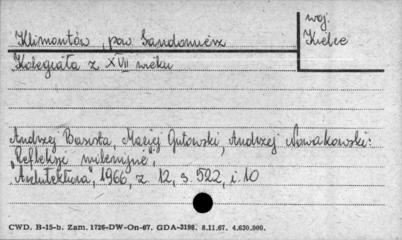 Klimontów, pow. Sandomierz
woj.
Kielce
Kolegiata z XVII wieku
Andrzej Basista, Maciej Gutowski, Andrzej Nowakowski:
"Refleksje milenijne",
"Architektura", 1966, z. 12, s. 522, i. 10
CWD. B-15-b. Zam. 1726-DW-On-67. GDA-3198. 8.11.67. 4.630.000.